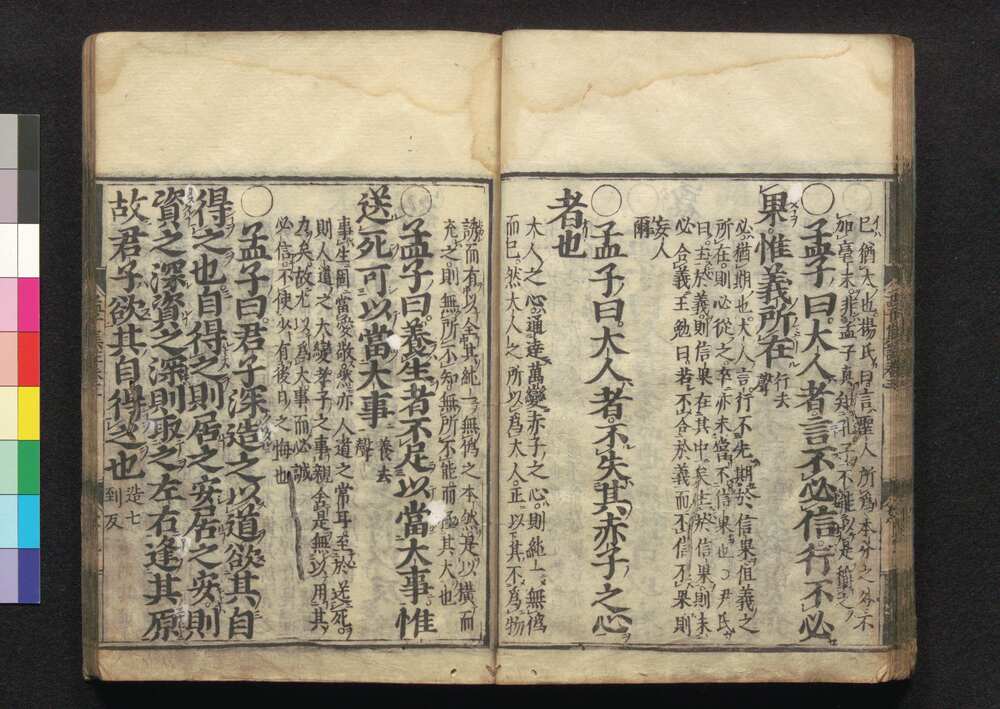 已猶太也楊氏曰言聖人所爲本分之外不
加毫末非孟子真知孔子不能以是稱之
○孟子曰大人者言不必信行不必
果惟義所在行去
聲
必猶期也大人言行不先期於信果但義之
所在則必從之卒亦未嘗不信果也○尹氏
曰主於義則信果在其中矣主於信果則未
必合義王勉曰若不合於義而不信不果則
妄人
爾
○孟子曰大人者不失其赤子之心
者也
大人之心通達萬變赤子之心則純一無僞
而已然大人之所以爲大人正以其不爲物
誘而有以全其純一無僞之本然是以擴而
充之則無所不知無所不能而極其大也
○孟子曰養生者不足以當大事惟
送死可以當大事養去
聲
事生固當愛敬然亦人道之常耳至於送死
則人道之大變孝子之事親舍是無以用其
力矣故尤以爲大事而必誠
必信不使少有後日之悔也
○孟子曰君子深造之以道欲其自
得之也自得之則居之安居之安則
資之深資之深則取之左右逢其原
故君子欲其自得之也造七
到反